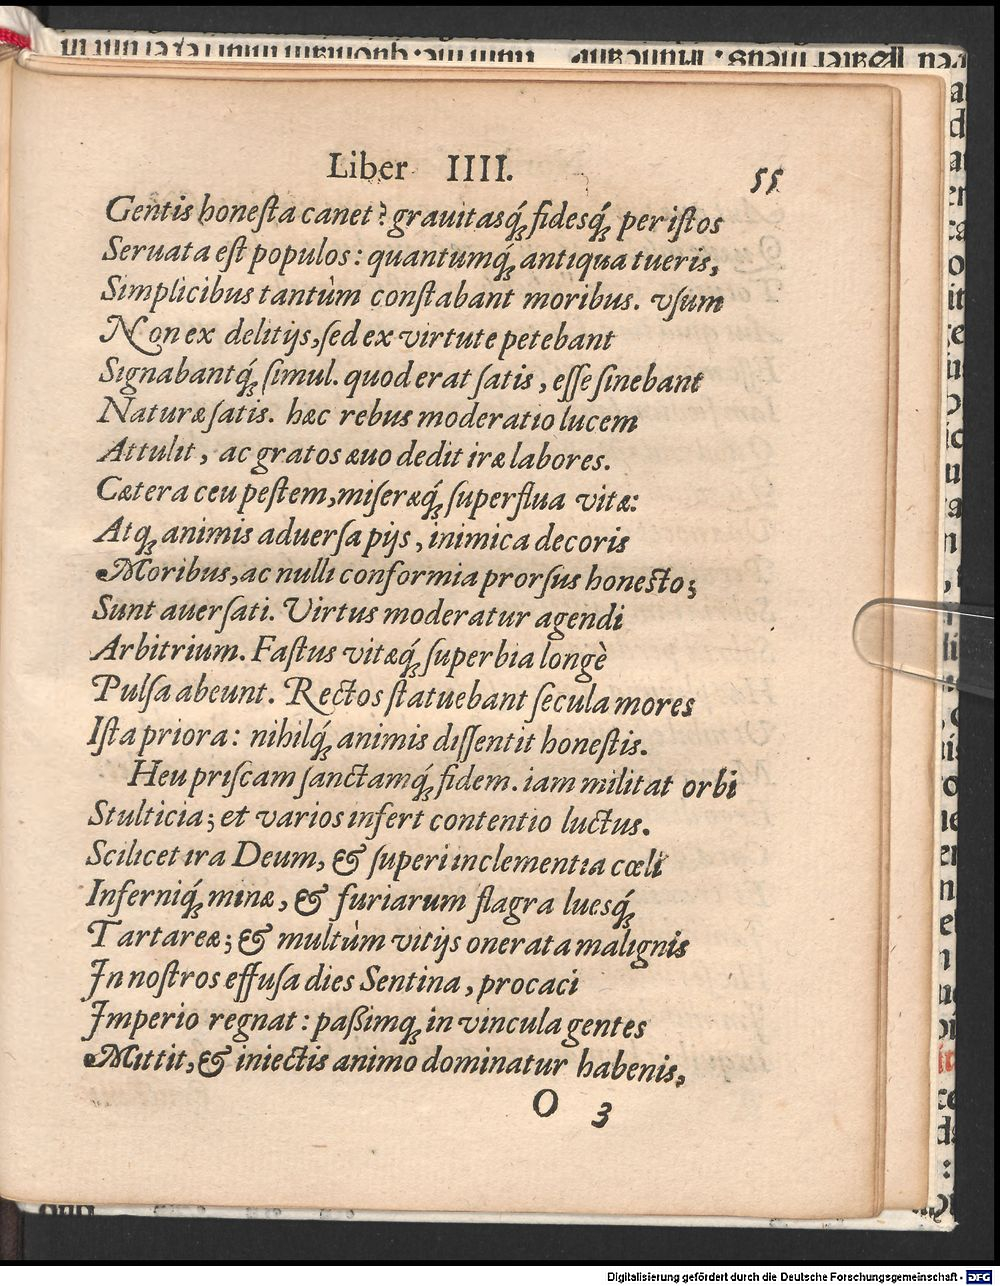 Liber IIII. 55
Gentis honeſta canet? grauitasq́ꝫ fidesq́ꝫ per iſtos
Seruata eſt populos: quantumq́ꝫ antiqua tueris,
Simplicibus tantùm conſtabant moribus. vſum
Non ex delitijs, ſed ex virtute petebant
Signabantq́ꝫ ſimul. quod erat ſatis, eſſe ſinebant
Naturæ ſatis. hæc rebus moderatio lucem
Attulit, ac gratos æuo dedit iræ labores.
Cætera ceu peſtem, miſeræq́ꝫ ſuperflua vitæ:
Atqꝫ animis aduerſa pijs, inimica decoris
Moribus, ac nulli conformia prorſus honeſto;
Sunt auerſati. Virtus moderatur agendi
Arbitrium. Faſtus vitæq́ꝫ ſuperbia longè
Pulſa abeunt. Rectos ſtatuebant ſecula mores
Iſta priora: nihilq́ꝫ animis diſſentit honeſtis.
Heu priſcam ſanctamq́ꝫ fidem. iam militat orbi
Stulticia; et varios infert contentio luctus.
Scilicet ira Deum, & ſuperi inclementia cœli
Inferniq́ꝫ minæ, & furiarum flagra luesq́ꝫ
Tartareæ; & multùm vitijs onerata malignis
In noſtros effuſa dies Sentina, procaci
Imperio regnat: paßimqꝫ in vincula gentes
Mittit, & iniectis animo dominatur habenis,
O 3
Digitalisierung gefördert durch die Deutsche Forschungsgemeinschaft - DFG